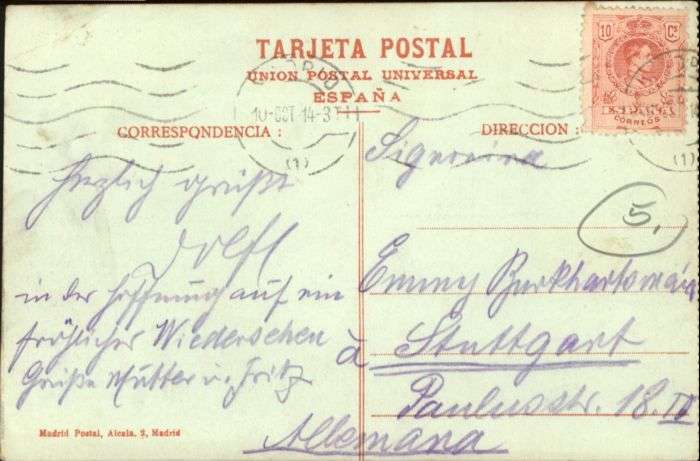 TARJETA POSTAL
UNION POSTAL UNIVERSAL
ESPAÑA
10 Cs
CORREOS
10-OCT 14-3T
(1)
(1)
CORRESPONDENCIA :
DIRECCION :
Herzlich grüßt
Dolff
in der Hoffnung auf ein
fröhliches Wiedersehen
Grüße Mutter u. Fritz
Signorina
5.
Emmy
à Stuttgart
Paulusstr. 18. IV
Allemana
Madrid Postal, Alcala, 2, Madrid